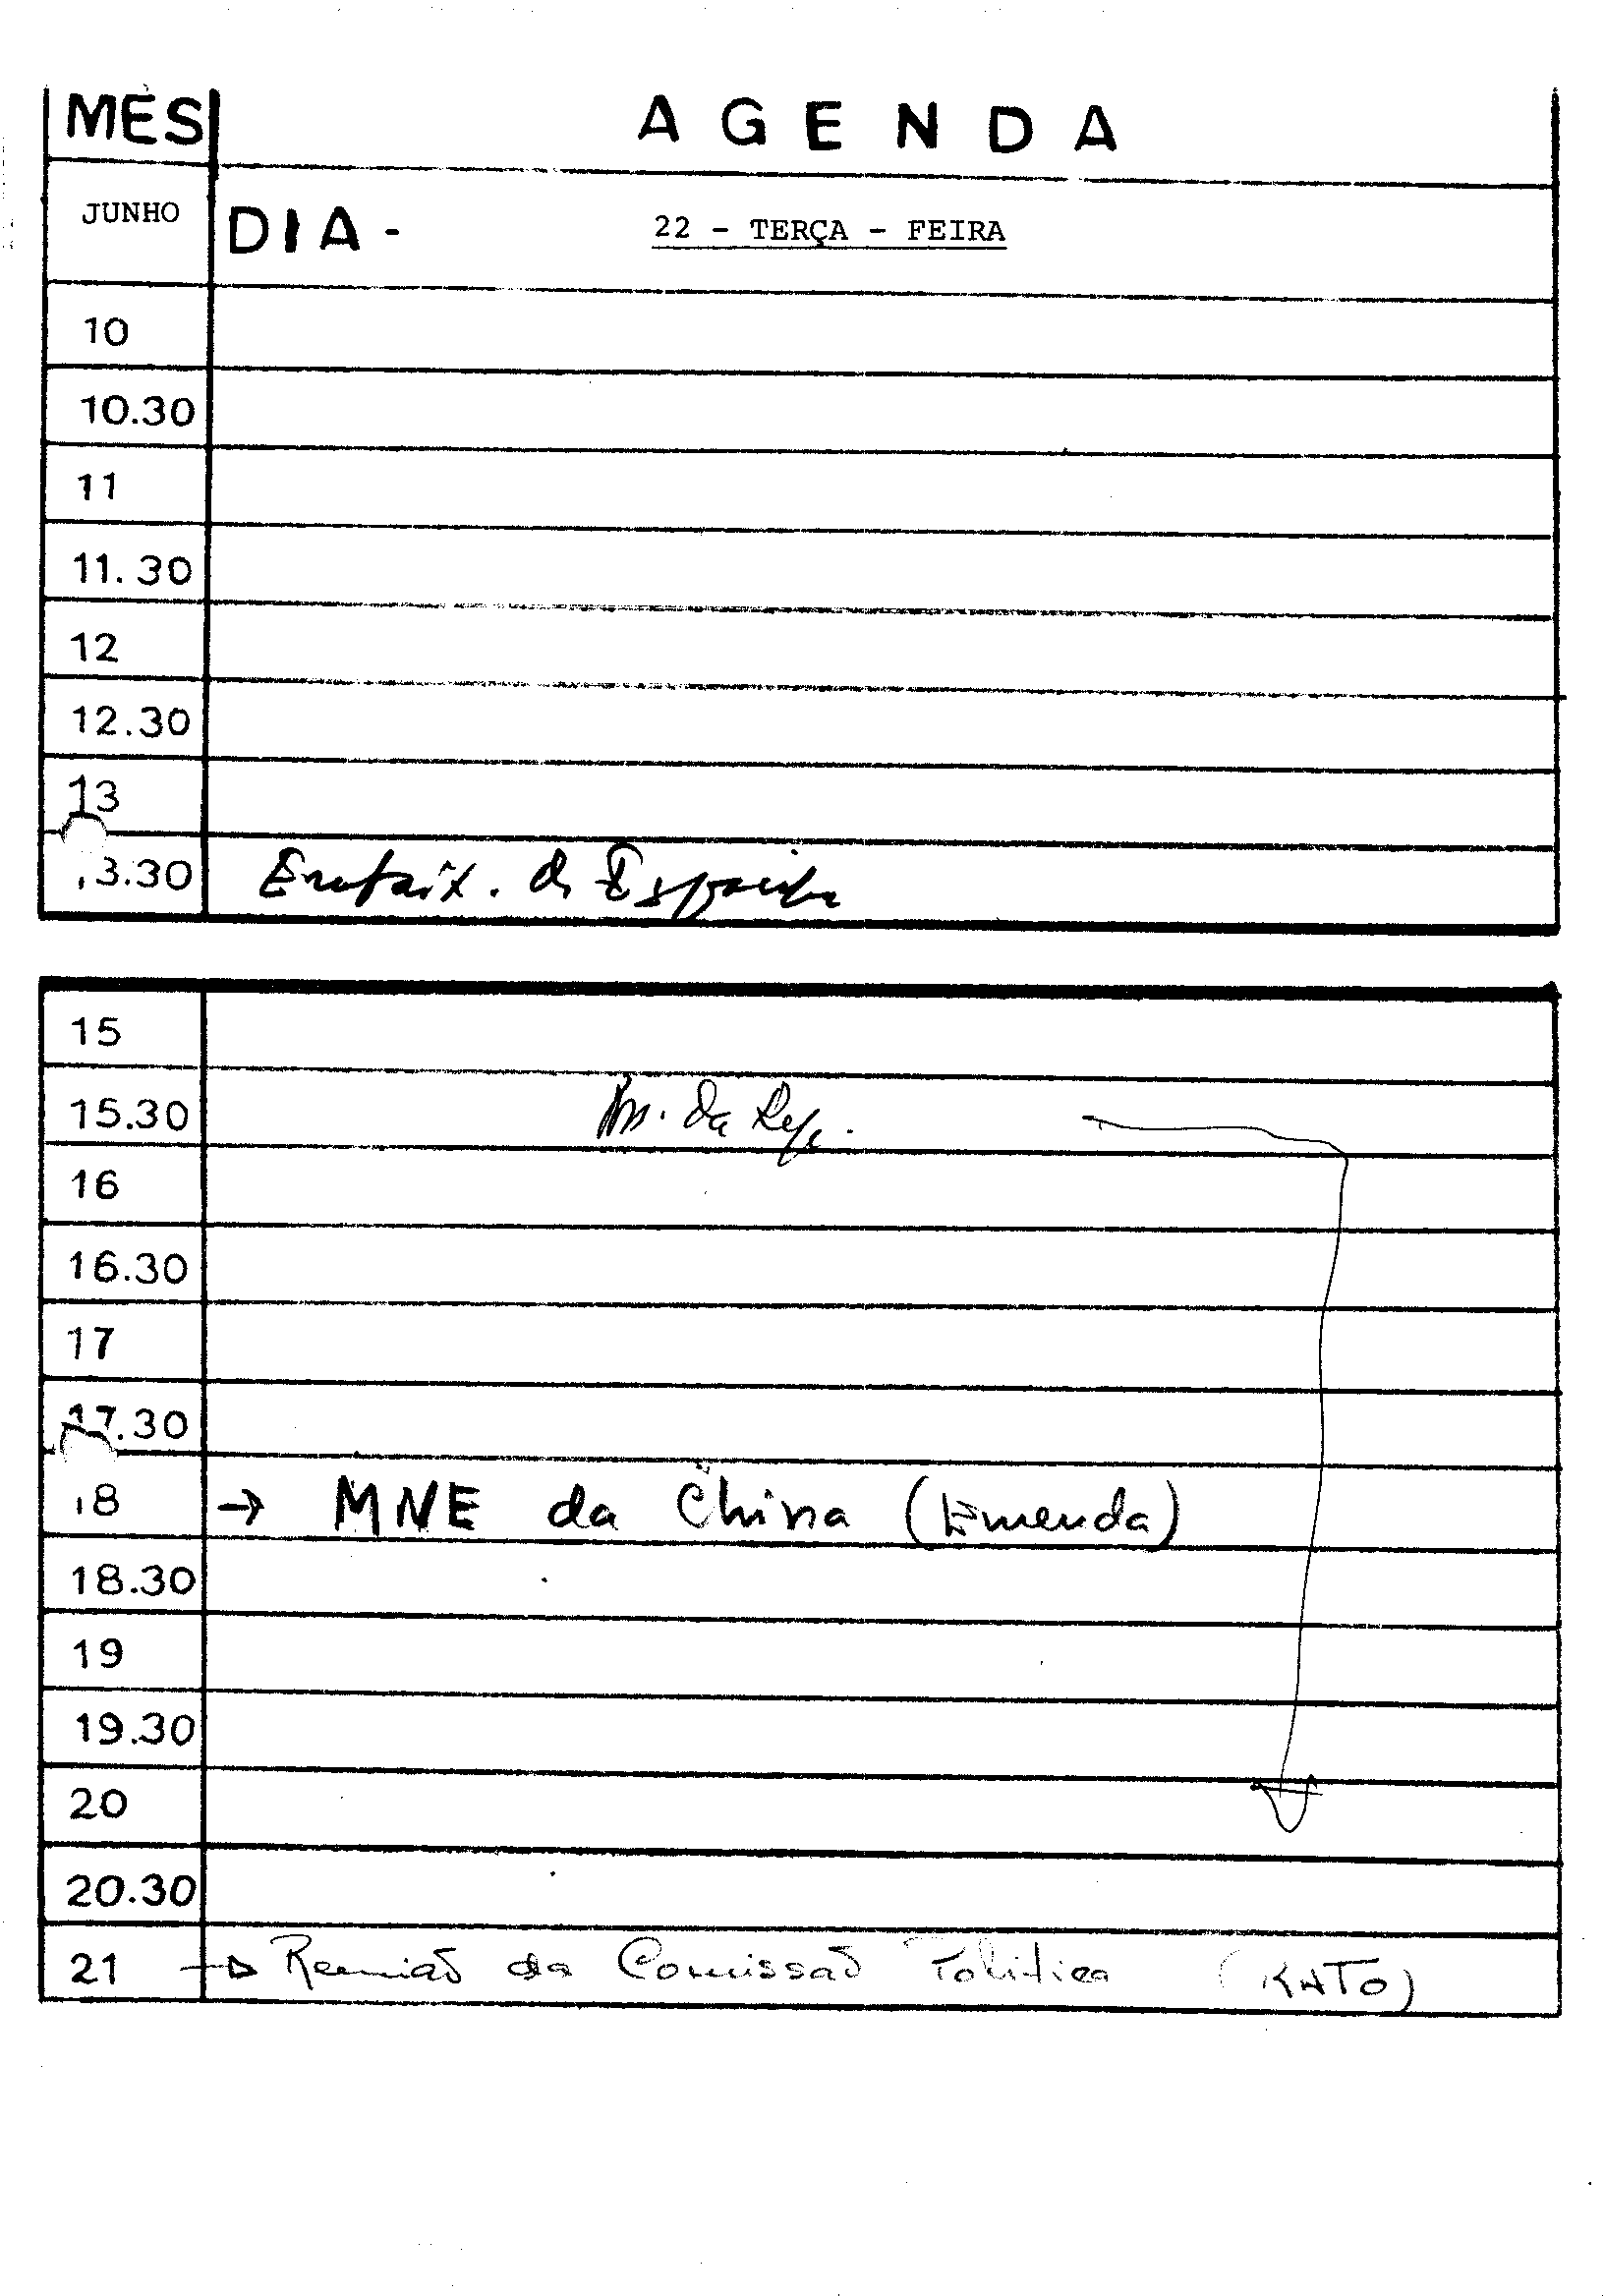 MÊS AGENDA
JUNHO DIA - 22 - TERÇA - FEIRA
10
10.30
11
11.30
12
12.30
13
13.30 Embaix. de Espanha
15
15.30 da Rep.
16
16.30
17
17.30
18 → MNE da China (Ementa)
18.30
19
19.30
20
20.30
21 → Reunião da Comissão Politica